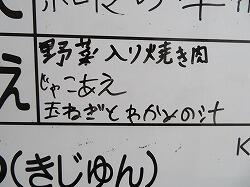 え
野菜入り焼き肉
じゃこあえ
玉ねぎとわかめの汁
(きじゅん)
K